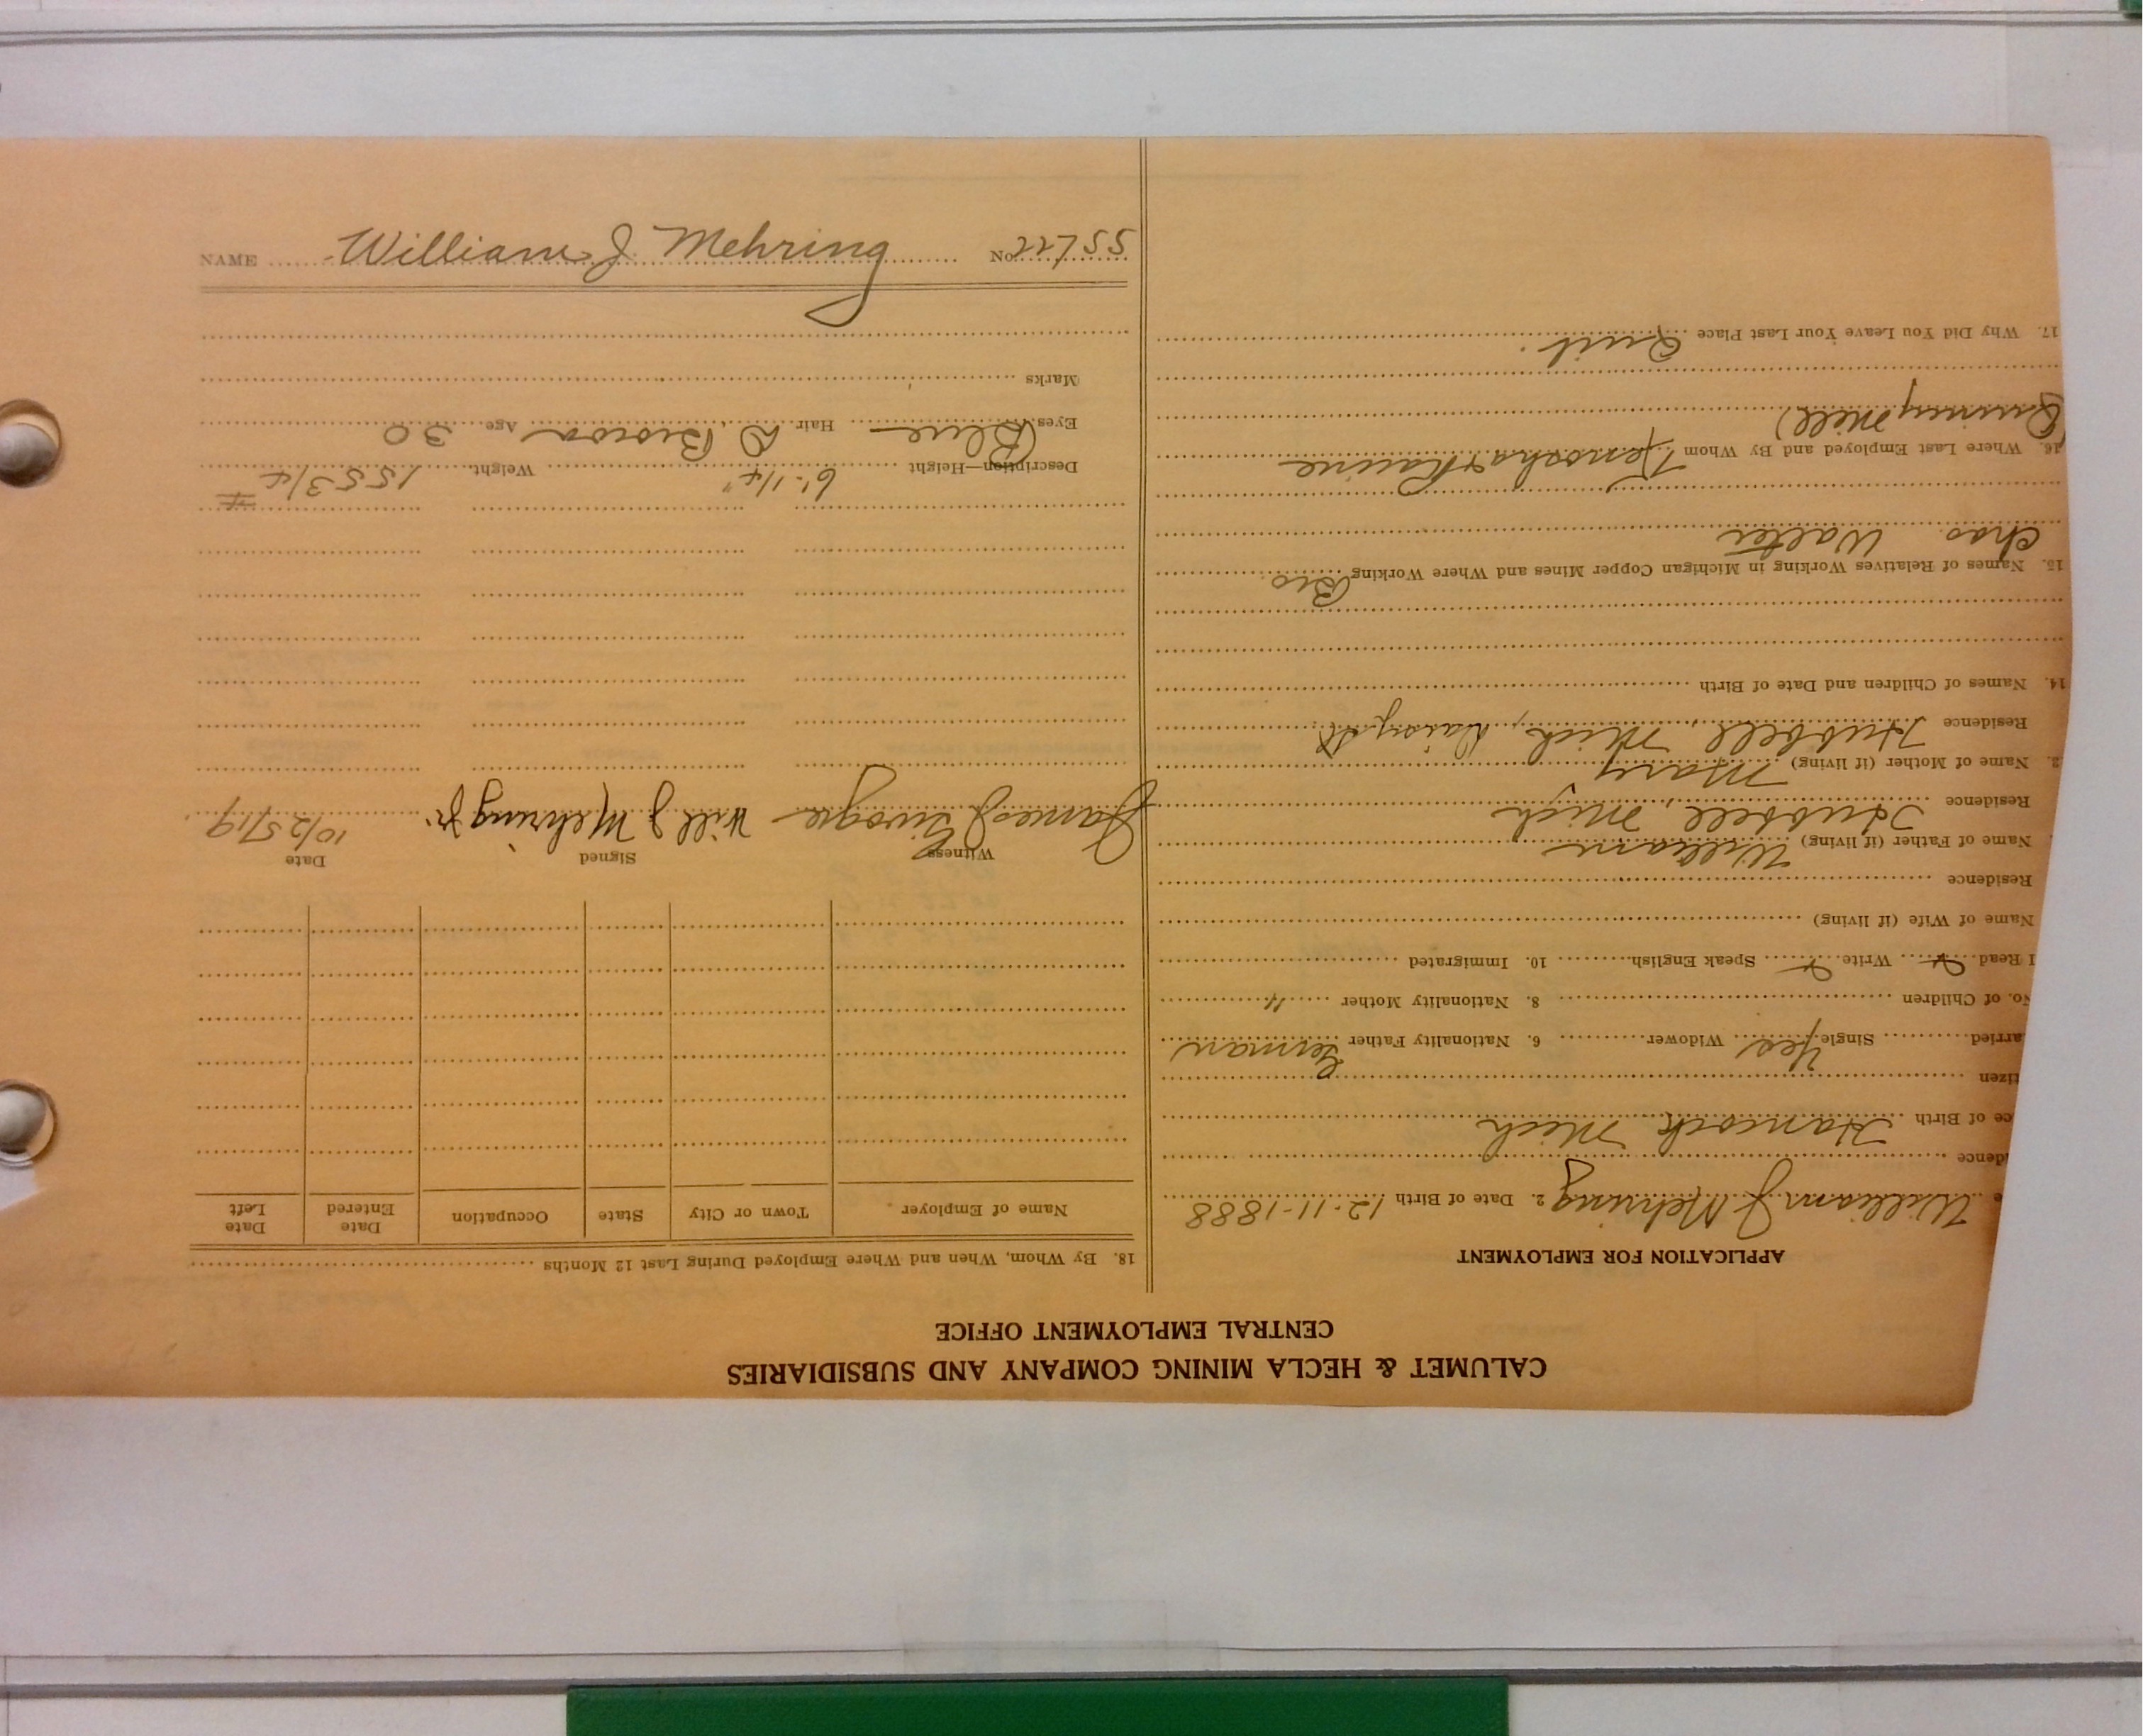 CALUMET & HECLA MINING COMPANY AND SUBSIDIARIES
CENTRAL EMPLOYMENT OFFICE
APPLICATION FOR EMPLOYMENT
e William J Mehring 2. Date of Birth 12-11-1888
idence
ce of Birth Hancock Mich
tizen
arried Single Yes Widower 6. Nationality Father German
No. of Children 8. Nationality Mother "
I Read Write Speak English 10. Immigrated
Name of Wife (if living)
Residence
Name of Father (if living) William
Residence Hubbell, Mich
2. Name of Mother (if living) Mary
Residence Hubbell, Mich, Daisy St.
14. Names of Children and Date of Birth
15. Names of Relatives Working in Michigan Copper Mines and Where Working Bro.
Chas. Walter
16. Where Last Employed and By Whom Kenosha & Racine
Quincy Mill)
17. Why Did You Leave Your Last Place Quit.
18. By Whom, When and Where Employed During Last 12 Months
Name of Employer Town or City State Occupation Date Entered Date Left
Witness Signed Date
James J Will J Mehring Jr. 10/25/19
Description—Height 6'-1/4" Weight 155 3/4 #
Eyes Blue Hair D. Brown Age 30
Marks
NAME William J Mehring No.